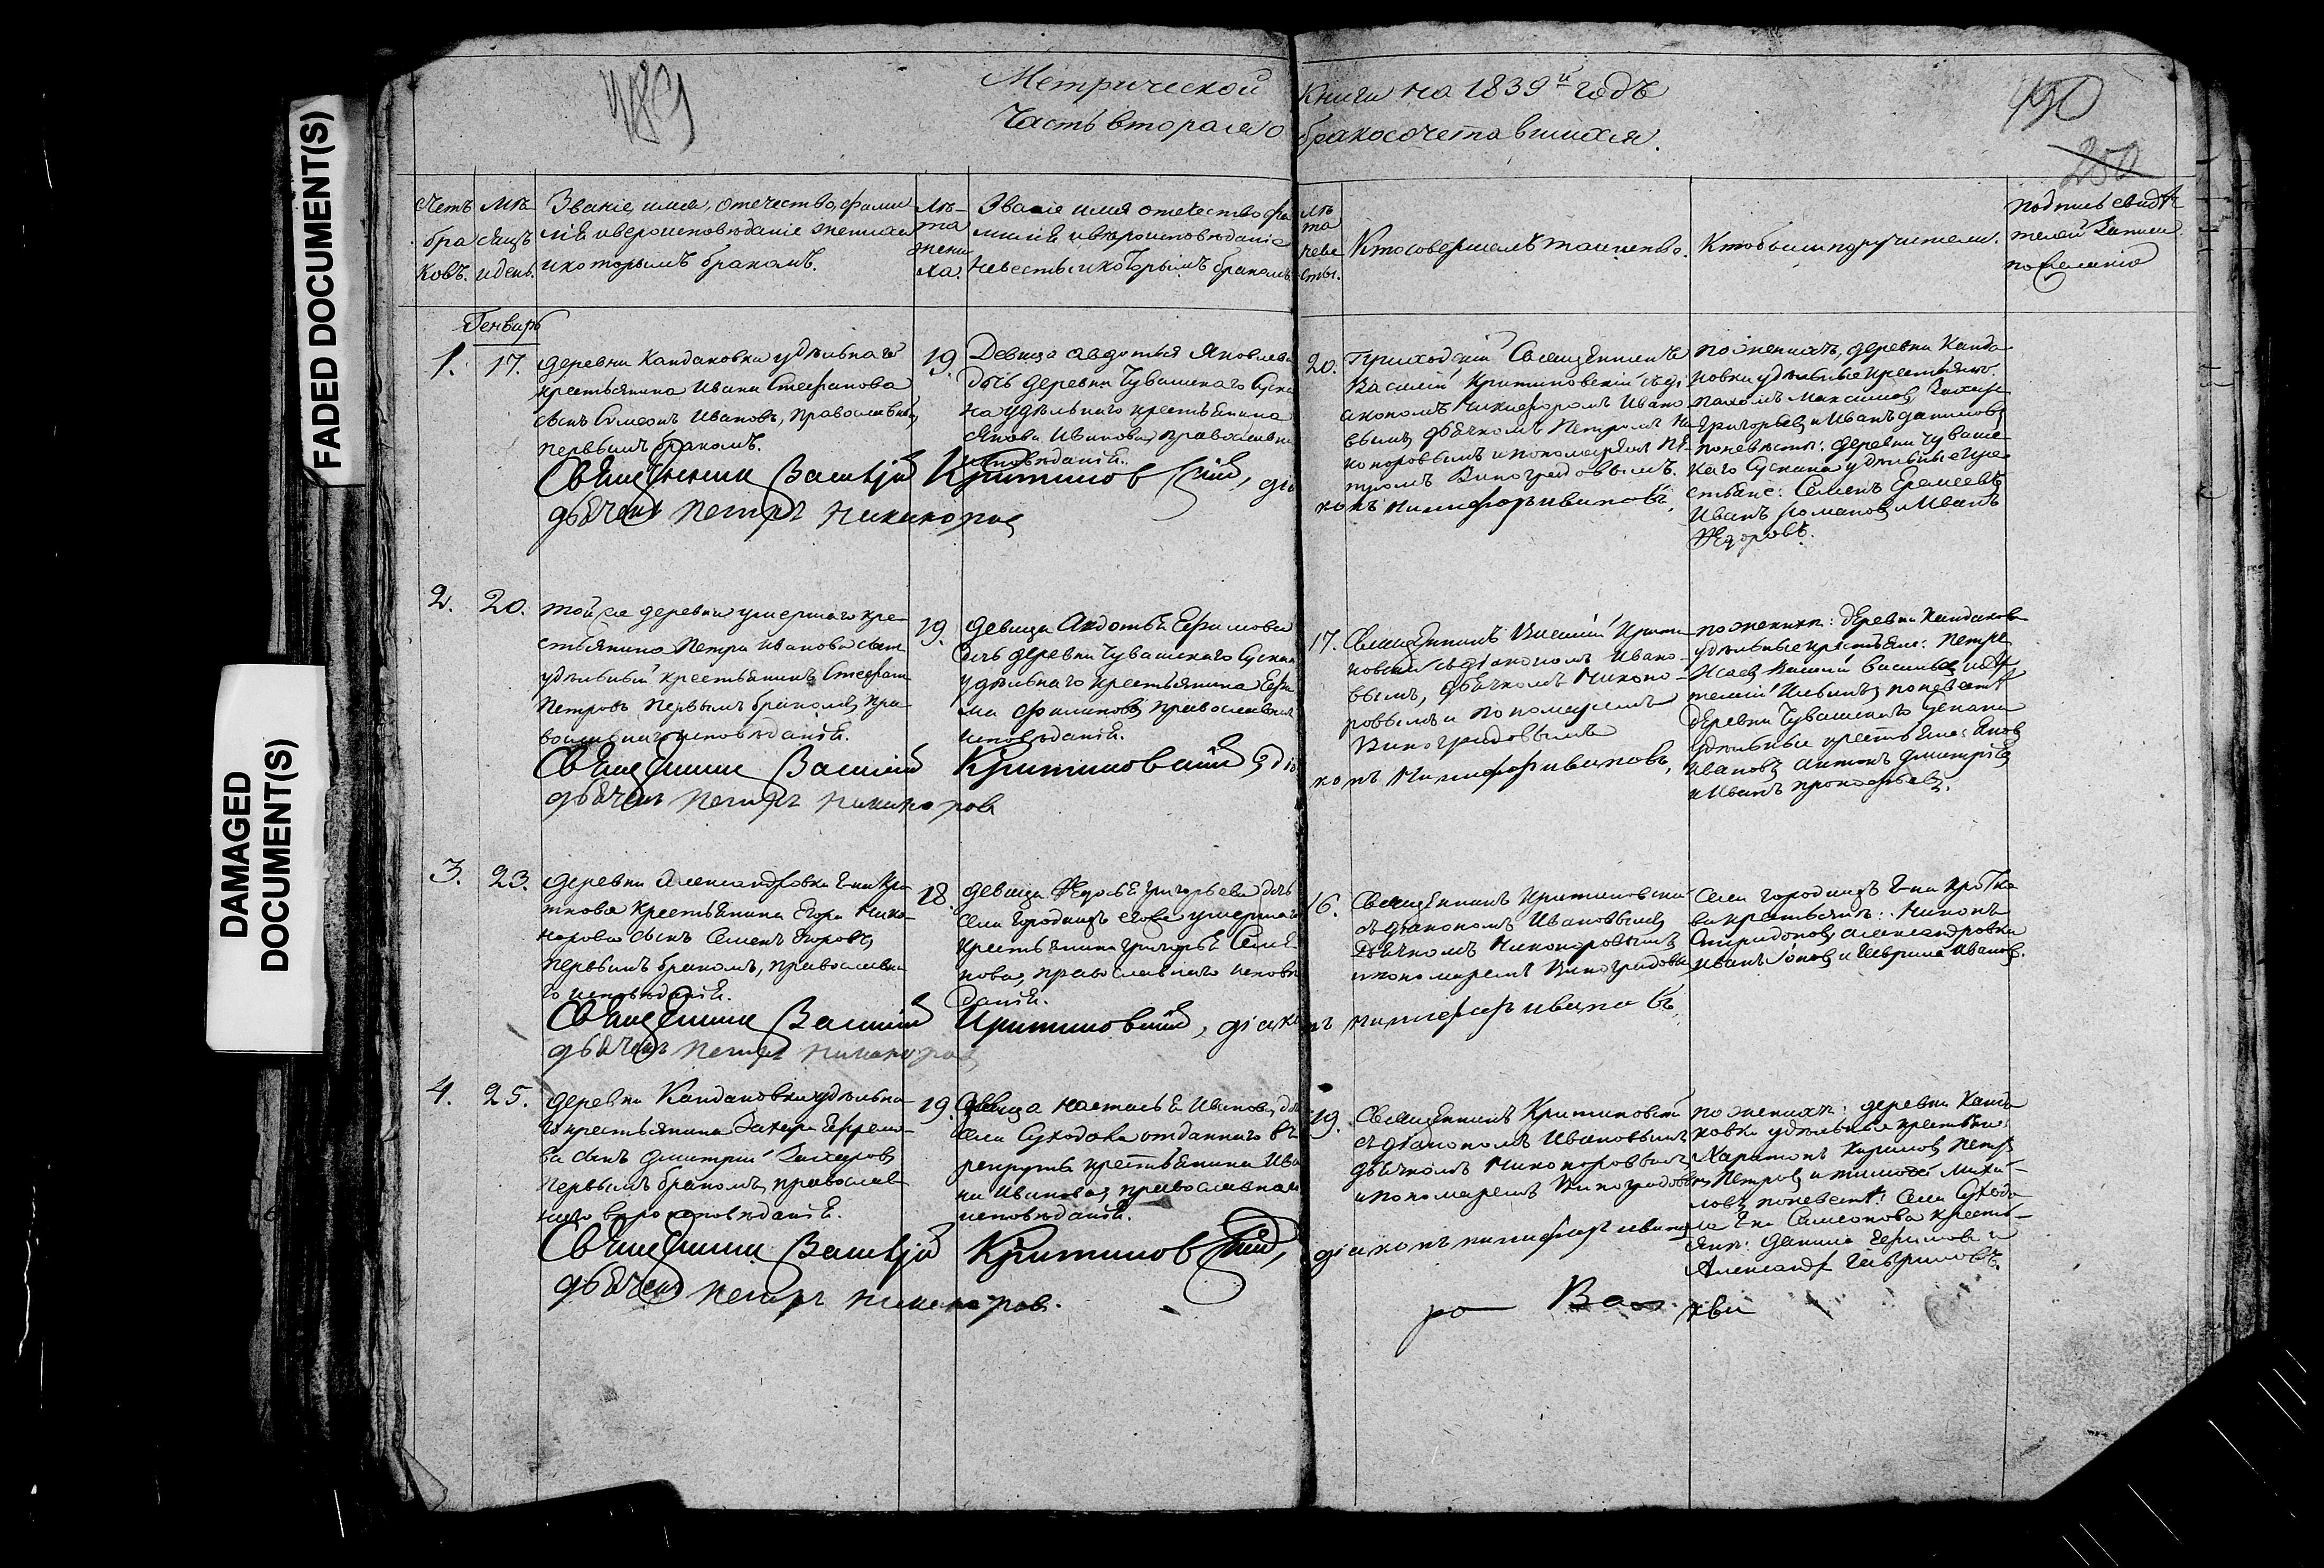 FADED DOCUMENT(S)
DAMAGED
DOCUMENT(S)
489
Метрической книги на 1839й годъ
Часть вторая о бракосочетавшихся.
490
250
Счетъ
бра
ковъ.
Мѣ-
сяцъ
и день.
Званіе, имя, отечество, фами
лія и вероисповѣданіе жениха
и которымъ бракомъ.
Лѣ-
та
жени
ха.
Званіе имя отечество фа
милія и вѣроисповѣданіе
невесты и которымъ бракомъ
лѣ
та
неве
сты.
Кто совершалъ таинство.
Кто были поручители.
подпись свидѣ
телей записи
по желанію
Генварь
1.
17.
деревни Кандаковки удѣльнаго
крестьянина Ивана Стефанова
сынъ Симеонъ Ивановъ, православный
первымъ бракомъ.
19.
Девица Авдотья Яковлева
дочь деревни Чувашскаго Суска
на удѣльнаго крестьянина
Якова Иванова, православна
исповѣданія.
20.
Приходскій Священникъ
Василій Критиновскій съ ді
акономъ Никифоромъ Ивано
вымъ, дьячкомъ Петромъ Ни
коноровымъ и пономаремъ Пе
тромъ Виноградовымъ.
по женихѣ, деревни Канда
ковки удѣльные крестьяне
Пахомъ Максимовъ, Захаръ
Григорьевъ и Иванъ Даниловъ
по невѣстѣ: деревни Чуваш
каго Сускана удѣльные кре
стьяне: Семенъ Еремеевъ
Иванъ Романовъ и Иванъ
Ѳедоровъ.
Священникъ Василій Критиновскій, діаконъ Никифоръ Ивановъ,
дьячекъ Петръ Никаноровъ
2.
20.
той же деревни умершаго кре-
стьянина Петра Иванова сынъ
удѣльный крестьянинъ Стефанъ
Петровъ первымъ бракомъ, пра-
вославнаго исповѣданія.
19.
девица Авдотья Ефимова
дочь деревни Чувашскаго Сускана
удѣльнаго крестьянина Ефи
ма Филипова, православнаго
исповѣданія.
17.
Священникъ Василій Крити
новскій съ діакономъ Ивано-
вымъ, дьячкомъ Никоно-
ровымъ и пономаремъ
Виноградовымъ
по женихѣ: деревни Кандаковки
удѣльные крестьяне: Петръ
Исаевъ, Василій Васильевъ и Ар
темій Ильинъ, по невѣстѣ
деревни Чувашскаго Сускана
удѣльные крестьяне: Яковъ
Ивановъ, Антонъ Дмитріевъ
и Иванъ Прокофьевъ.
Священникъ Василій Критиновскій, діаконъ Никифоръ Ивановъ,
дьячекъ Петръ Никаноровъ
3.
23.
деревни Александровки Г-на Кро
ткова крестьянина Егора Нико-
норова сынъ Семенъ Егоровъ,
первымъ бракомъ, православна
го исповѣданія.
18.
девица Ѳедосья Григорьева дочь
села Городищъ егоже умершаго
крестьянина Григорья Семе
нова, православнаго исповѣ
данія.
16.
Священникъ Критиновскій
съ діакономъ Ивановымъ
дьячкомъ Никоноровымъ
и пономаремъ Виноградовы
Села Городищъ Г-на Кротко
ва крестьянинъ: Никонъ
Спиридоновъ, Александровки
Иванъ Іоновъ и Гаврила Ивановъ.
Священникъ Василій Критиновскій, діаконъ Никифоръ Ивановъ
дьячекъ Петръ Никаноровъ
4.
25.
деревни Кандаковки удѣльна-
го крестьянина Захара Ефремо-
ва сынъ Дмитрій Захаровъ
первымъ бракомъ, православ
наго вероисповѣданія.
19.
Девица Настасья Иванова дочь
села Суходола отданнаго въ
рекруты крестьянина Ива
на Иванова, православнаго
исповѣданія.
19.
Священникъ Критиновскій
съ діакономъ Ивановымъ
дьячкомъ Никоноровымъ
и пономаремъ Виноградовы
по женихѣ: деревни Канда
ковки удѣльные крестьяне:
Харитонъ Кириловъ, Петръ
Петровъ и Тимофей Михай-
ловъ, по невѣстѣ: села Суходо
ла Г-на Самсонова крестья-
яне: Данила Герасимовъ и
Александръ Гавриловъ.
Священникъ Василій Критиновскій, діаконъ Никифоръ Ивановъ
дьячекъ Петръ Никаноровъ.